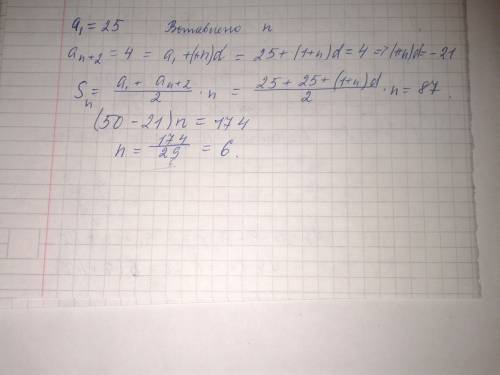 a₁ = 25 Вставлено n
aₙ₊₂ = 4 = a₁ + (1+n)d = 25 + (1+n)d = 4 => (1+n)d = -21
Sₙ = (a₁ + aₙ₊₂)/2 · n = (25 + 25 + (1+n)d)/2 · n = 87.
(50 - 21)n = 174
n = 174/29 = 6.